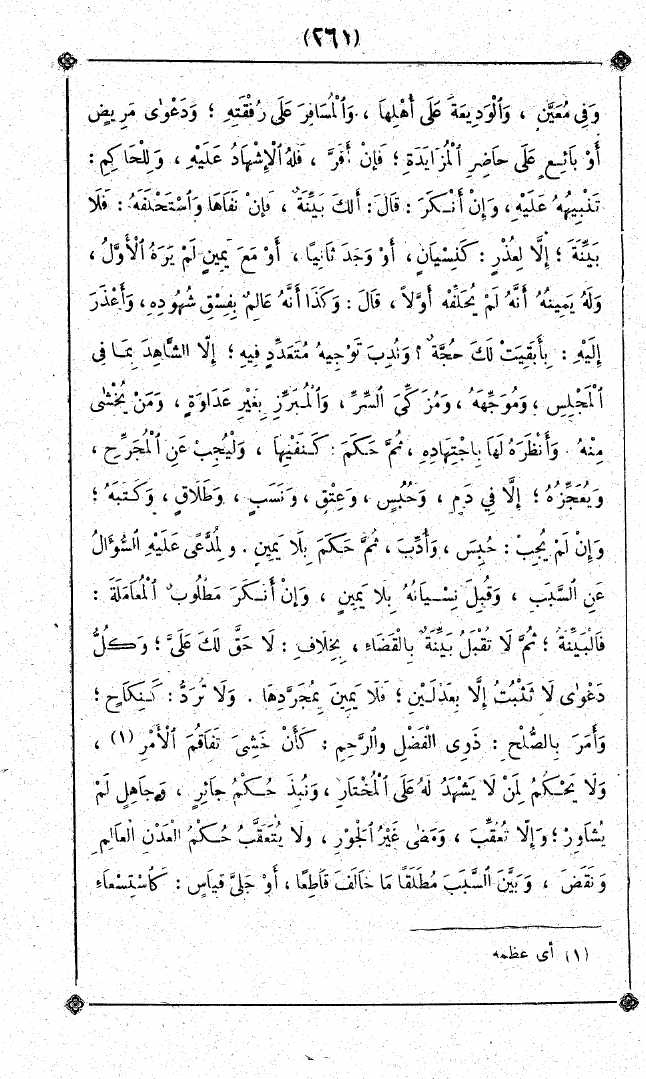 (٢٦١)
وَفِي مُعَيَّنٍ ، وَٱلْوَدِيعَةَ عَلَى أَهْلِهَا ، وَٱلْمُسَافِرَ عَلَى رُفْقَتِهِ ؛ وَدَعْوٰى مَرِيضٍ
أَوْ بَائِعٍ عَلَى حَاضِرِ ٱلْمُزَايَدَةِ ؛ فَإِنْ أَقَرَّ ، فَلَهُ ٱلْإِشْهَادُ عَلَيْهِ ، وَلِلْحَاكِمِ :
تَنْبِيهُهُ عَلَيْهِ ، وَإِنْ أَنْكَرَ : قَالَ : أَلَكَ بَيِّنَةٌ ، فَإِنْ نَفَاهَا وَٱسْتَحْلَفَهُ : فَلَا
بَيِّنَةَ ؛ إِلَّا لِعُذْرٍ : كَنِسْيَانٍ ، أَوْ وَجَدَ ثَانِيًا ، أَوْ مَعَ يَمِينٍ لَمْ يَرَهُ ٱلْأَوَّلُ ،
وَلَهُ يَمِينُهُ أَنَّهُ لَمْ يُحَلِّفْهُ أَوَّلاً ، قَالَ : وَكَذَا أَنَّهُ عَالِمٌ بِفِسْقِ شُهُودِهِ ، وَأَعْذَرَ
إِلَيْهِ : بِأَبَقِيَتْ لَكَ حُجَّةٌ ؟ وَنُدِبَ تَوْجِيهُ مُتَعَدِّدٍ فِيهِ ؛ إِلَّا ٱلشَّاهِدَ بِمَا فِي
ٱلْمَجْلِسِ ؛ وَمُوَجِّهَهُ ، وَمُزَكِّيَ ٱلسِّرِّ ، وَٱلْمُبَرِّزَ بِغَيْرِ عَدَاوَةٍ ، وَمَنْ يُخْشٰى
مِنْهُ . وَأَنْظَرَهُ لَهَا بِاجْتِهَادِهِ ، ثُمَّ حَكَمَ : كَنَفْيِهَا ، وَلْيُجِبْ عَنِ ٱلْمُجَرِّحِ ،
وَيُعَجِّزُهُ ؛ إِلَّا فِي دَمٍ ، وَحُبُسٍ ، وَعِتْقٍ ، وَنَسَبٍ ، وَطَلَاقٍ ، وَكَتَبَهُ ؛
وَإِنْ لَمْ يُجِبْ : حُبِسَ ، وَأُدِّبَ ، ثُمَّ حَكَمَ بِلَا يَمِينٍ . وَلِمُدَّعًى عَلَيْهِ ٱلسُّؤَالُ
عَنِ ٱلسَّبَبِ ، وَقُبِلَ نِسْيَانُهُ بِلَا يَمِينٍ ، وَإِنْ أَنْكَرَ مَطْلُوبٌ ٱلْمُعَامَلَةَ :
فَٱلْبَيِّنَةُ ؛ ثُمَّ لَا تُقْبَلُ بَيِّنَةٌ بِالْقَضَاءِ ، بِخِلَافِ : لَا حَقَّ لَكَ عَلَىَّ ؛ وَكُلُّ
دَعْوٰى لَا تَثْبُتُ إِلَّا بِعَدْلَيْنِ ؛ فَلَا يَمِينَ بِمُجَرَّدِهَا . وَلَا تُرَدُّ : كَنِكَاحٍ ؛
وَأَمَرَ بِالصُّلْحِ : ذَوِى الْفَضْلِ وَالرَّحِمِ : كَأَنْ خَشِىَ تَفَاقُمَ ٱلْأَمْرِ (١) ،
وَلَا يَحْكُمُ لِمَنْ لَا يَشْهَدُ لَهُ عَلَى ٱلْمُخْتَارِ ، وَنُبِذَ حُكْمُ جَائِرٍ ، وَجَاهِلٍ لَمْ
يُشَاوِرْ ؛ وَإِلَّا تُعُقِّبَ ، وَمَضٰى غَيْرُ ٱلْجَوْرِ ، وَلَا يُتَعَقَّبُ حُكْمُ الْعَدْلِ الْعَالِمِ
وَنَقَضَ ، وَبَيَّنَ ٱلسَّبَبَ مُطْلَقًا مَا خَالَفَ قَاطِعًا ، أَوْ جَلِىَّ قِيَاسٍ : كَٱسْتِسْعَاءِ
(١) أى عظمه